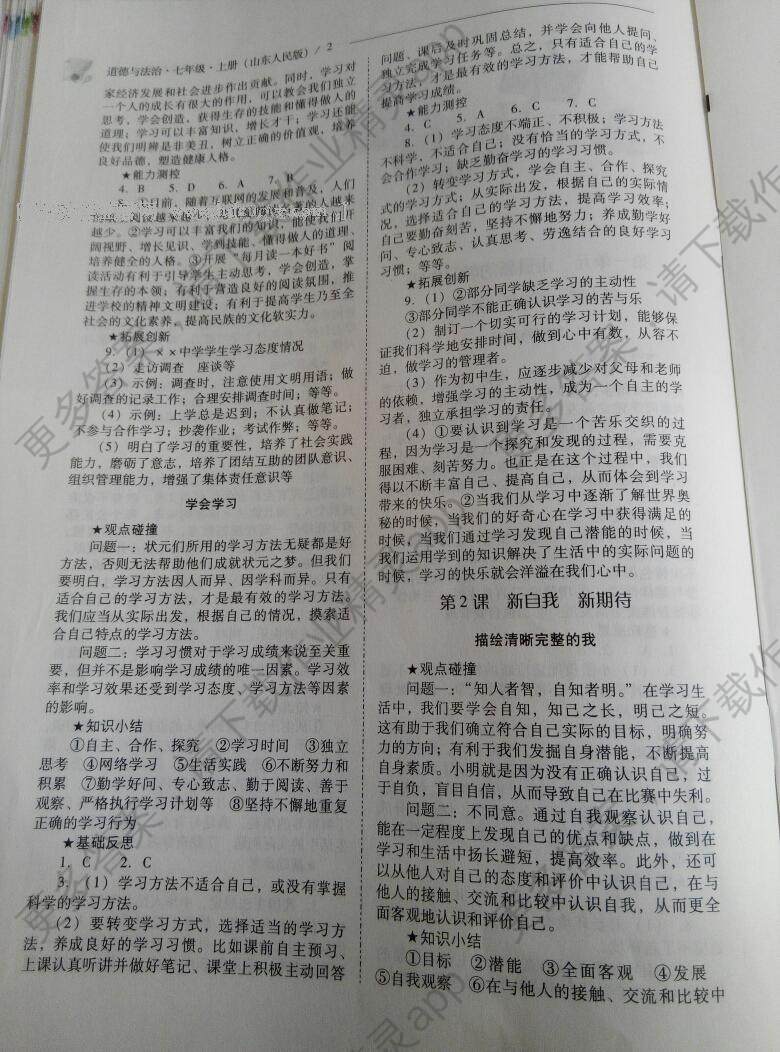 道德与法治·七年级·上册（山东人民版）/ 2
家经济发展和社会进步作出贡献。同时，学习对
一个人的成长有很大的作用，可以教会我们独立
思考，学会创造，获得生存的技能和懂得做人的
道理；学习可以丰富知识，增长才干；学习还能
使我们明辨是非美丑，树立正确的价值观，培养
良好品德，塑造健康人格。
★能力测控
4. B 5. D 6. A 7. B
目前，随着互联网的发展和普及，人们
越少。②学习可以丰富我们的知识，能使我们开
阔视野、增长见识、学到技能、懂得做人的道理、
培养健全的人格。③开展“每月读一本好书”阅
读活动有利于引导学生主动思考，学会创造，掌
握生存的本领；有利于营造良好的阅读氛围，推
进学校的精神文明建设；有利于提高学生乃至全
社会的文化素养，提高民族的文化软实力。
★拓展创新
9.（1）××中学学生学习态度情况
（2）走访调查 座谈等
（3）示例：调查时，注意使用文明用语；做
好调查的记录工作；合理安排调查时间；等等。
（4）示例：上学总是迟到；不认真做笔记；
不参与合作学习；抄袭作业；考试作弊；等等。
（5）明白了学习的重要性，培养了社会实践
能力，磨砺了意志，培养了团结互助的团队意识、
组织管理能力，增强了集体责任意识等
学会学习
★观点碰撞
问题一：状元们所用的学习方法无疑都是好
方法，否则无法帮助他们成就状元之梦。但我们
要明白，学习方法因人而异、因学科而异。只有
适合自己的学习方法，才是最有效的学习方法。
我们应当从实际出发，根据自己的情况，摸索适
合自己特点的学习方法。
问题二：学习习惯对于学习成绩来说至关重
要，但并不是影响学习成绩的唯一因素。学习效
率和学习效果还受到学习态度、学习方法等因素
的影响。
★知识小结
①自主、合作、探究 ②学习时间 ③独立
思考 ④网络学习 ⑤生活实践 ⑥不断努力和
积累 ⑦勤学好问、专心致志、勤于阅读、善于
观察、严格执行学习计划等 ⑧坚持不懈地重复
正确的学习行为
★基础反思
1. C 2. C
3.（1）学习方法不适合自己，或没有掌握
科学的学习方法。
（2）要转变学习方式，选择适当的学习方
法，养成良好的学习习惯。比如课前自主预习、
上课认真听讲并做好笔记、课堂上积极主动回答
问题、课后及时巩固总结，并学会向他人提问、
独立完成学习任务等。总之，只有适合自己的学
习方法，才是最有效的学习方法，才能帮助自己
提高学习成绩。
★能力测控
4. C 5. A 6. C 7. C
8.（1）学习态度不端正、不积极；学习方法
不科学，不适合自己；没有恰当的学习方式，不
会合作学习；缺乏勤奋学习的学习习惯。
（2）转变学习方式，学会自主、合作、探究
式的学习方式；从实际出发，根据自己的实际情
况，选择适合自己的学习方法，提高学习效率；
自己要勤奋刻苦，坚持不懈地努力；养成勤学好
问、专心致志、认真思考、劳逸结合的良好学习
习惯；等等。
★拓展创新
9.（1）②部分同学缺乏学习的主动性
③部分同学不能正确认识学习的苦与乐
（2）制订一个切实可行的学习计划，能够保
证我们科学地安排时间，做到心中有数，从容不
迫，做学习的管理者。
（3）作为初中生，应逐步减少对父母和老师
的依赖，增强学习的主动性，成为一个自主的学
习者，独立承担学习的责任。
（4）①要认识到学习是一个苦乐交织的过
程，因为学习是一个探究和发现的过程，需要克
服困难、刻苦努力。也正是在这个过程中，我们
得以不断丰富自己、提高自己，从而体会到学习
带来的快乐。②当我们从学习中逐渐了解世界奥
秘的时候，当我们的好奇心在学习中获得满足的
时候，当我们通过学习发现自己潜能的时候，当
我们运用学到的知识解决了生活中的实际问题的
时候，学习的快乐就会洋溢在我们心中。
第2课 新自我 新期待
描绘清晰完整的我
★观点碰撞
问题一：“知人者智，自知者明。”在学习生
活中，我们要学会自知，知己之长，明己之短。
这有助于我们确立符合自己实际的目标，明确努
力的方向；有利于我们发掘自身潜能，不断提高
自身素质。小明就是因为没有正确认识自己，过
于自负，盲目自信，从而导致自己在比赛中失利。
问题二：不同意。通过自我观察认识自己，
能在一定程度上发现自己的优点和缺点，做到在
学习和生活中扬长避短，提高效率。此外，还可
以从他人对自己的态度和评价中认识自己，在与
他人的接触、交流和比较中认识自我，从而更全
面客观地认识和评价自己。
★知识小结
①目标 ②潜能 ③全面客观 ④发展
⑤自我观察 ⑥在与他人的接触、交流和比较中